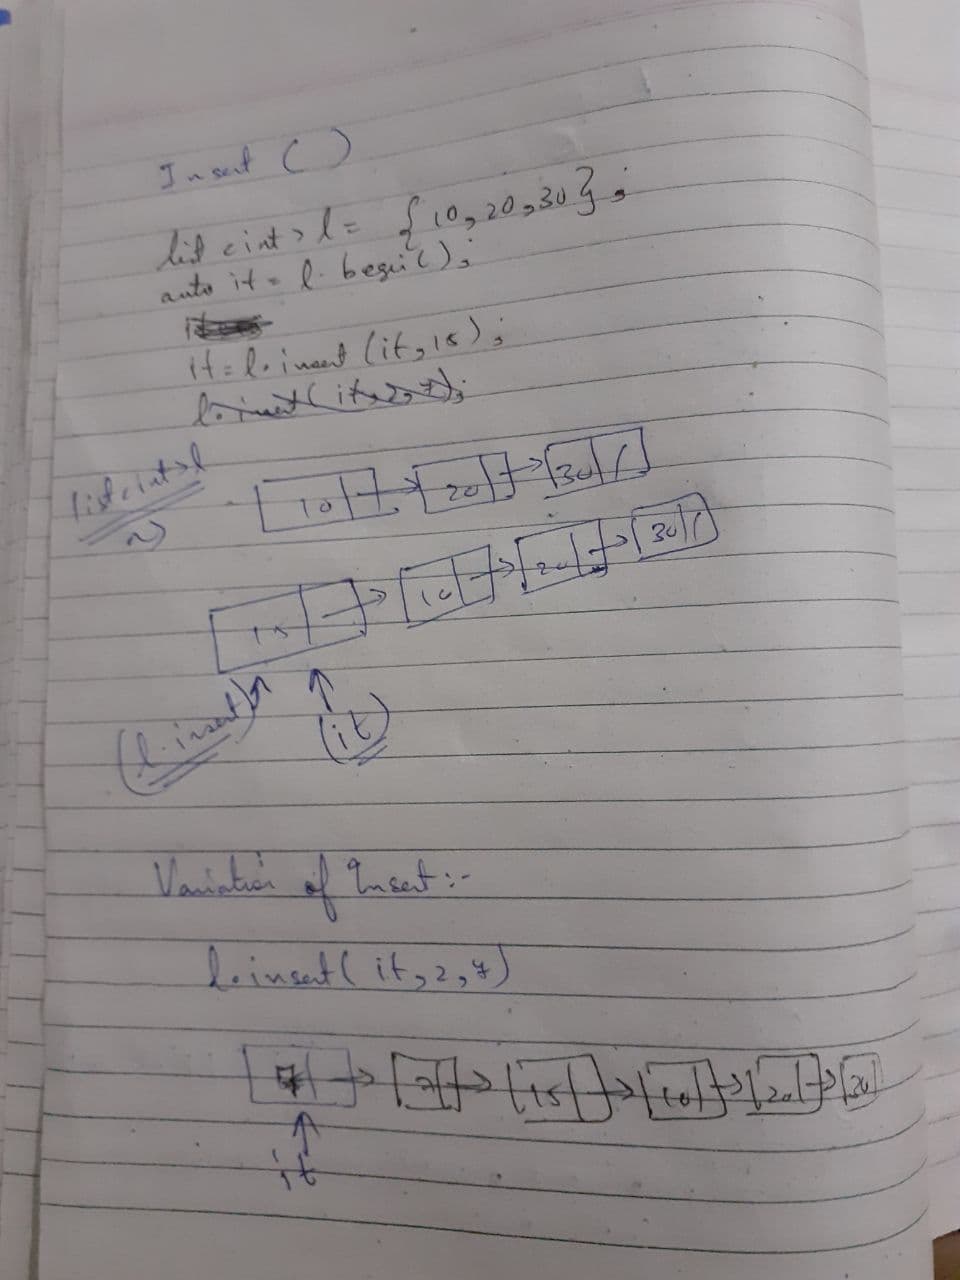 Insert ()
list <int> l = {10, 20, 30};
auto it = l. begin();
it = l. insert (it, 15);
l. insert (it, 2, 7);
list<int> l
10 20 30
15 10 20 30
(l. insert) (it)
Variation of Insert :-
l. insert ( it, 2, 7)
7 7 15 10 20 30
it